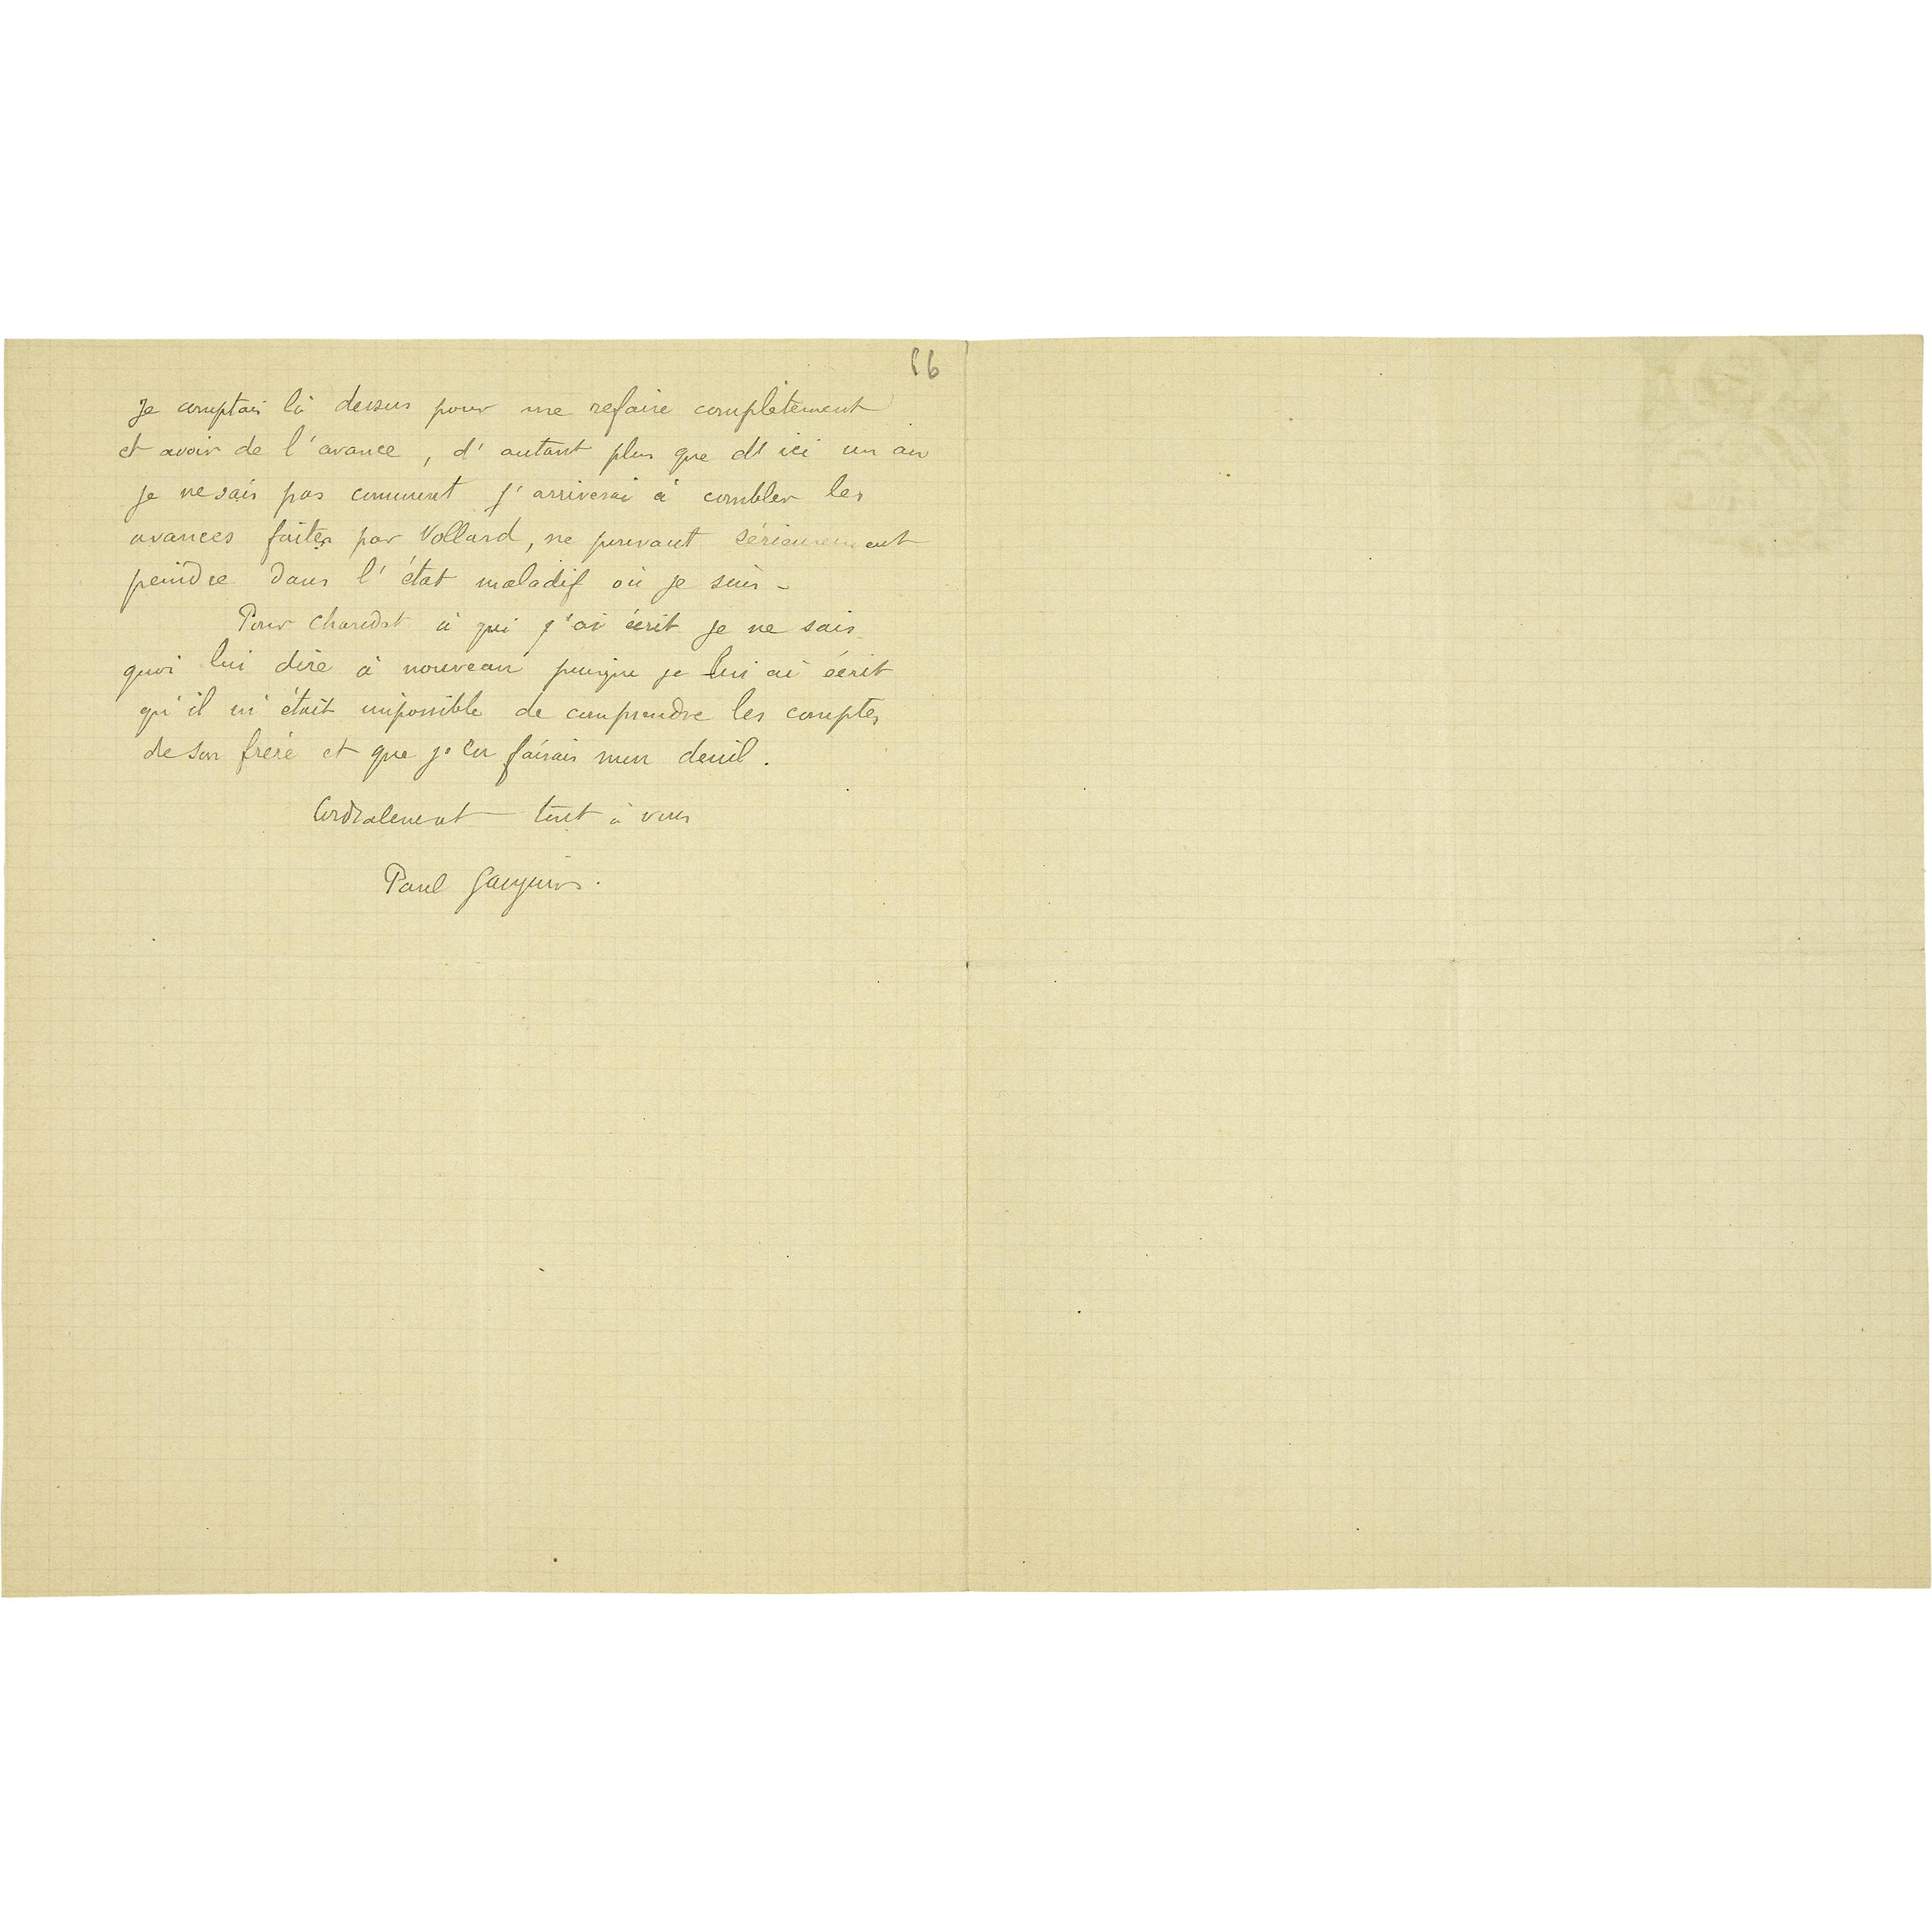 86
Je comptais là dessus pour me refaire complètement
et avoir de l'avance, d'autant plus que d'ici un an
je ne sais pas comment j'arriverai à combler les
avances faites par Vollard, ne pouvant sérieusement
peindre dans l'état maladif où je suis -
Pour Chaudet à qui j'ai écrit je ne sais
quoi lui dire à nouveau puisque je lui ai écrit
qu'il m'était impossible de comprendre les comptes
de son frère et que j'en faisais mon deuil.
Cordialement tout à vous
Paul Gauguin.